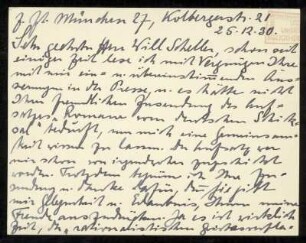 z. Zt. München 27, Kolbergerstr. 21
25.12.30.
Sehr geehrter Herr Will Scheller, schon seit
einiger Zeit lese ich mit Vergnügen Ihre
mit mir ein- u. übereinstimmenden Äus-
serungen in der Presse, u. es hätte nicht
Ihrer freundlichen Zusendung des Auf-
satzes „Romane vom deutschen Schick-
sal" bedurft, um mich eine Gemeinsam-
keit wissen zu lassen. Der Aufsatz war
mir schon von irgendwoher zugeschickt
worden. Trotzdem begrüsse ich Ihre Zu-
sendung u. danke dafür, da Sie gibt
mir Gelegenheit u. Erlaubnis, Ihnen meine
Freude auszudrücken. Ja es ist wirklich
Zeit, der rationalistischen